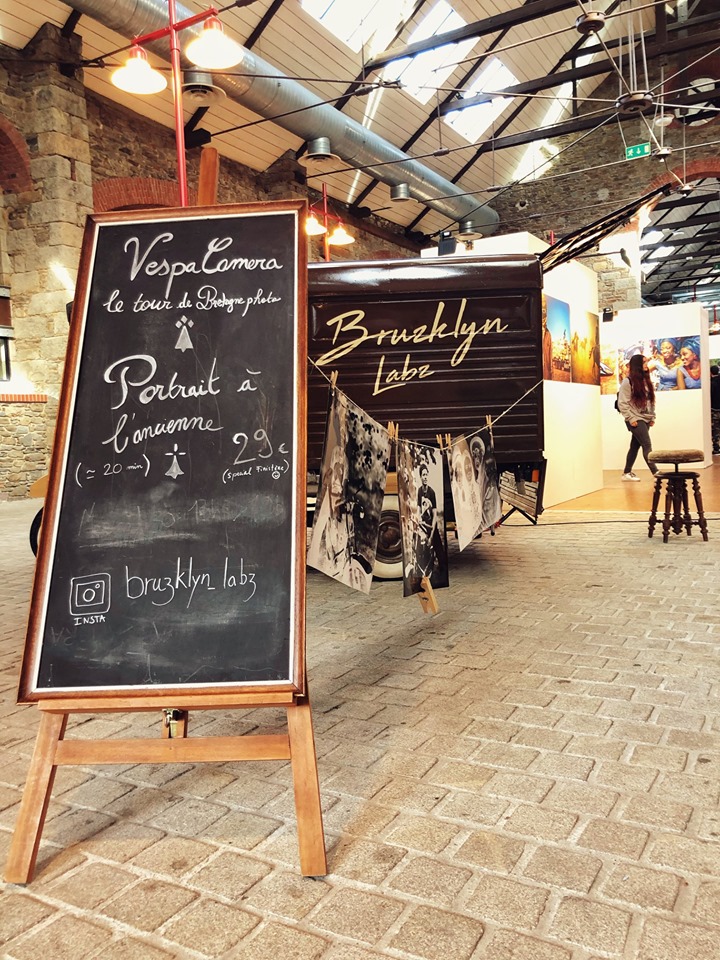 VespaCamera
le tour de Bretagne photo
Portrait à
l'ancienne
(≃ 20 min)
29€
(special Finistère)
INSTA
bruzklyn_labz
Bruzklyn
Labz